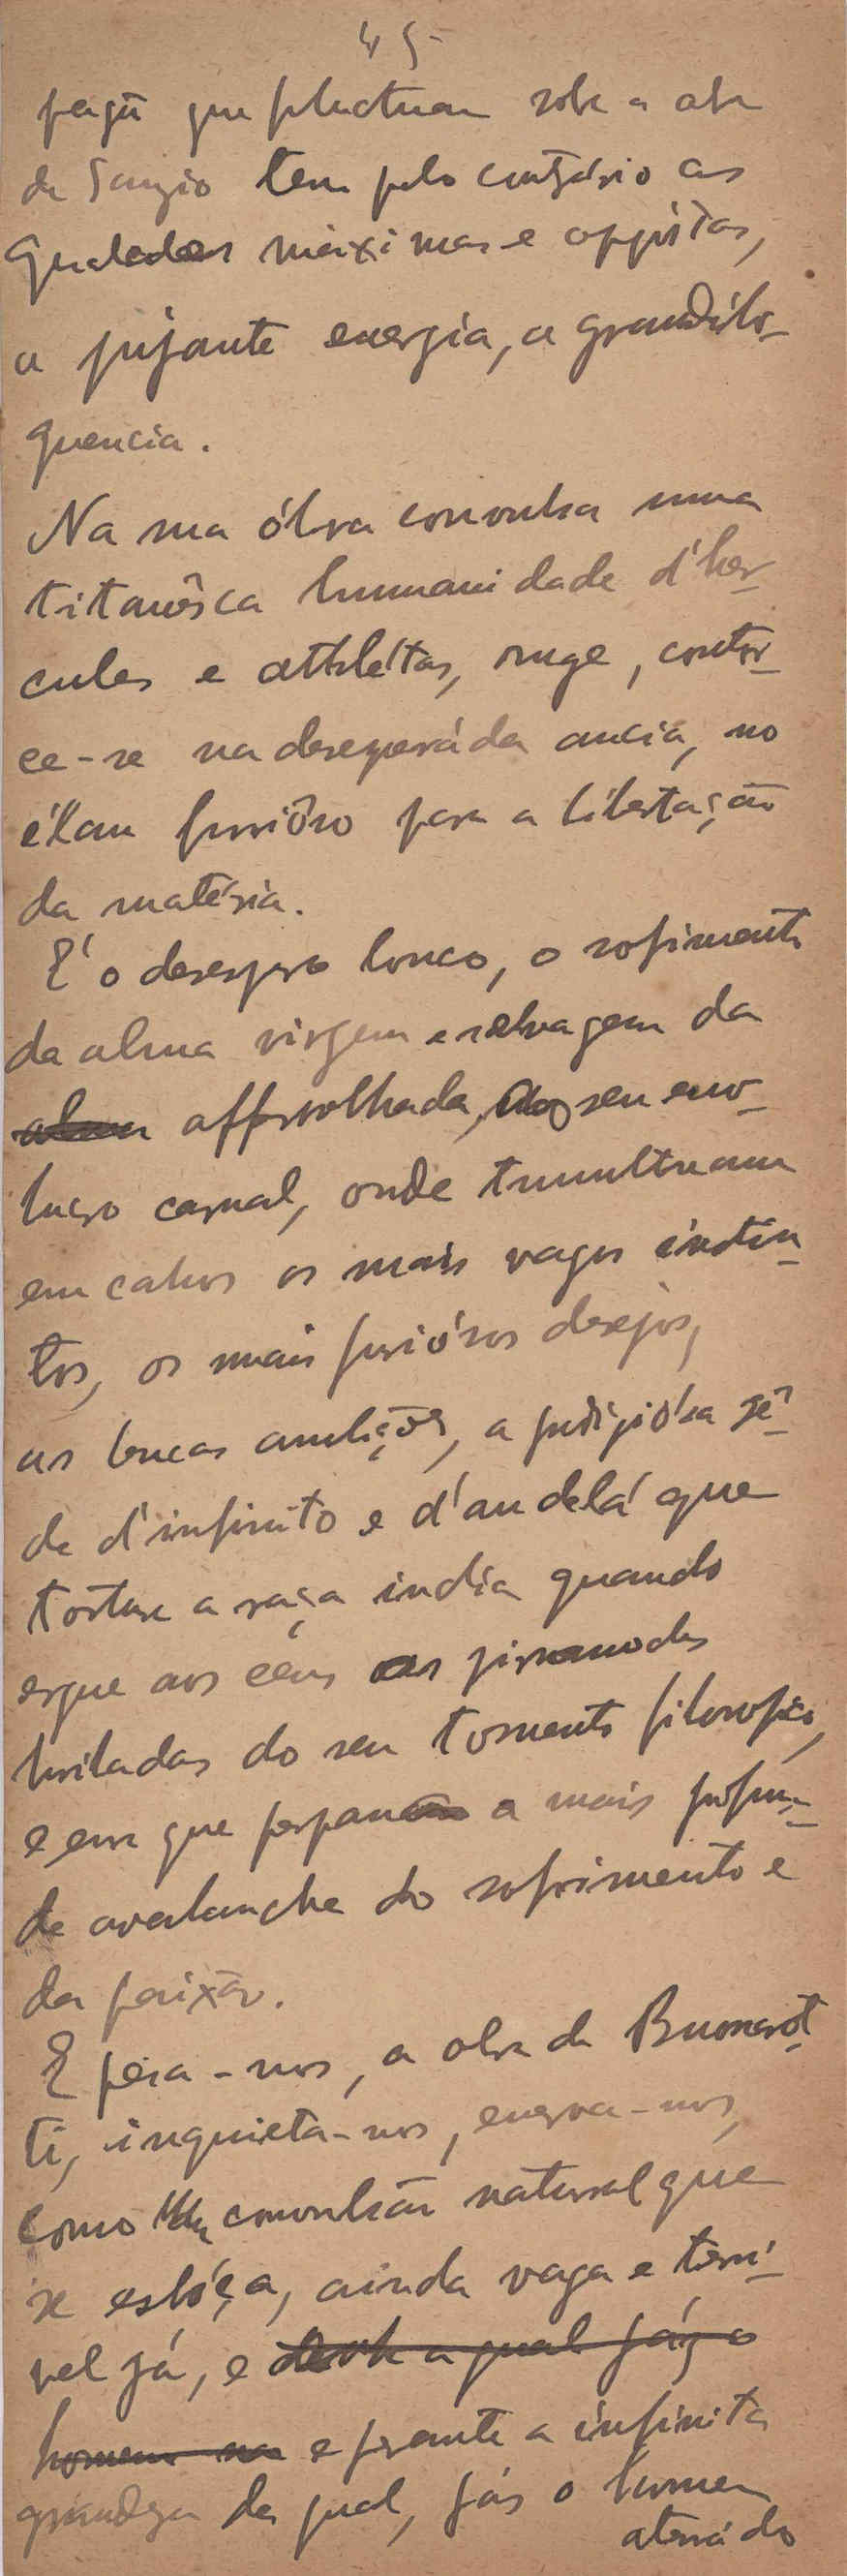 45
pagã que fluctuam sobre a obra
de Sanzio tem pelo contrário as
qualidades máximas e oppóstas,
a pujante energia, a grandilo-
quencia.
Na sua óbra convulsa uma
titanêsca humanidade d'her-
cules e athlétas, ruge, contor-
ce-se na deseperáda ancia, no
élan furiôso para a libertação
da matéria.
E' o desespero louco, o sofrimento
da alma virgem e selvagem da
alma afferrolhada, ao seu envo-
lucro carnal, onde tumultuam
em cahos os mais vagos instin-
tos, os mais furiósos desejos,
as loucas ambições, a prodigiósa sê-
de d'infinito e d'au delá que
tortura a raça india quando
ergue aos céus as piramodes
buriladas do seu tormento filosofico,
e em que perpassa a mais profun-
da avalanche do sofrimento e
da paixão.
E pesa-nos, a obra de Buonarot-
ti, inquieta-nos, enerva-nos,
como uma convulsão natural que
se esbóça, ainda vaga e terri-
vel já, e deante a qual jáz o
homem na e perante a infinita
grandeza da qual, jás o homem
aterrádo